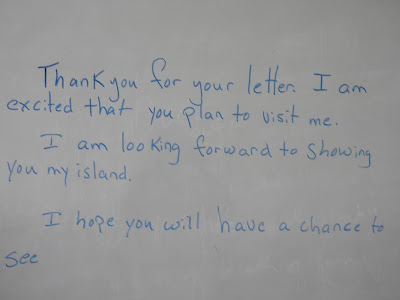 Thank you for your letter. I am
excited that you plan to visit me.
I am looking forward to showing
you my island.
I hope you will have a chance to
see